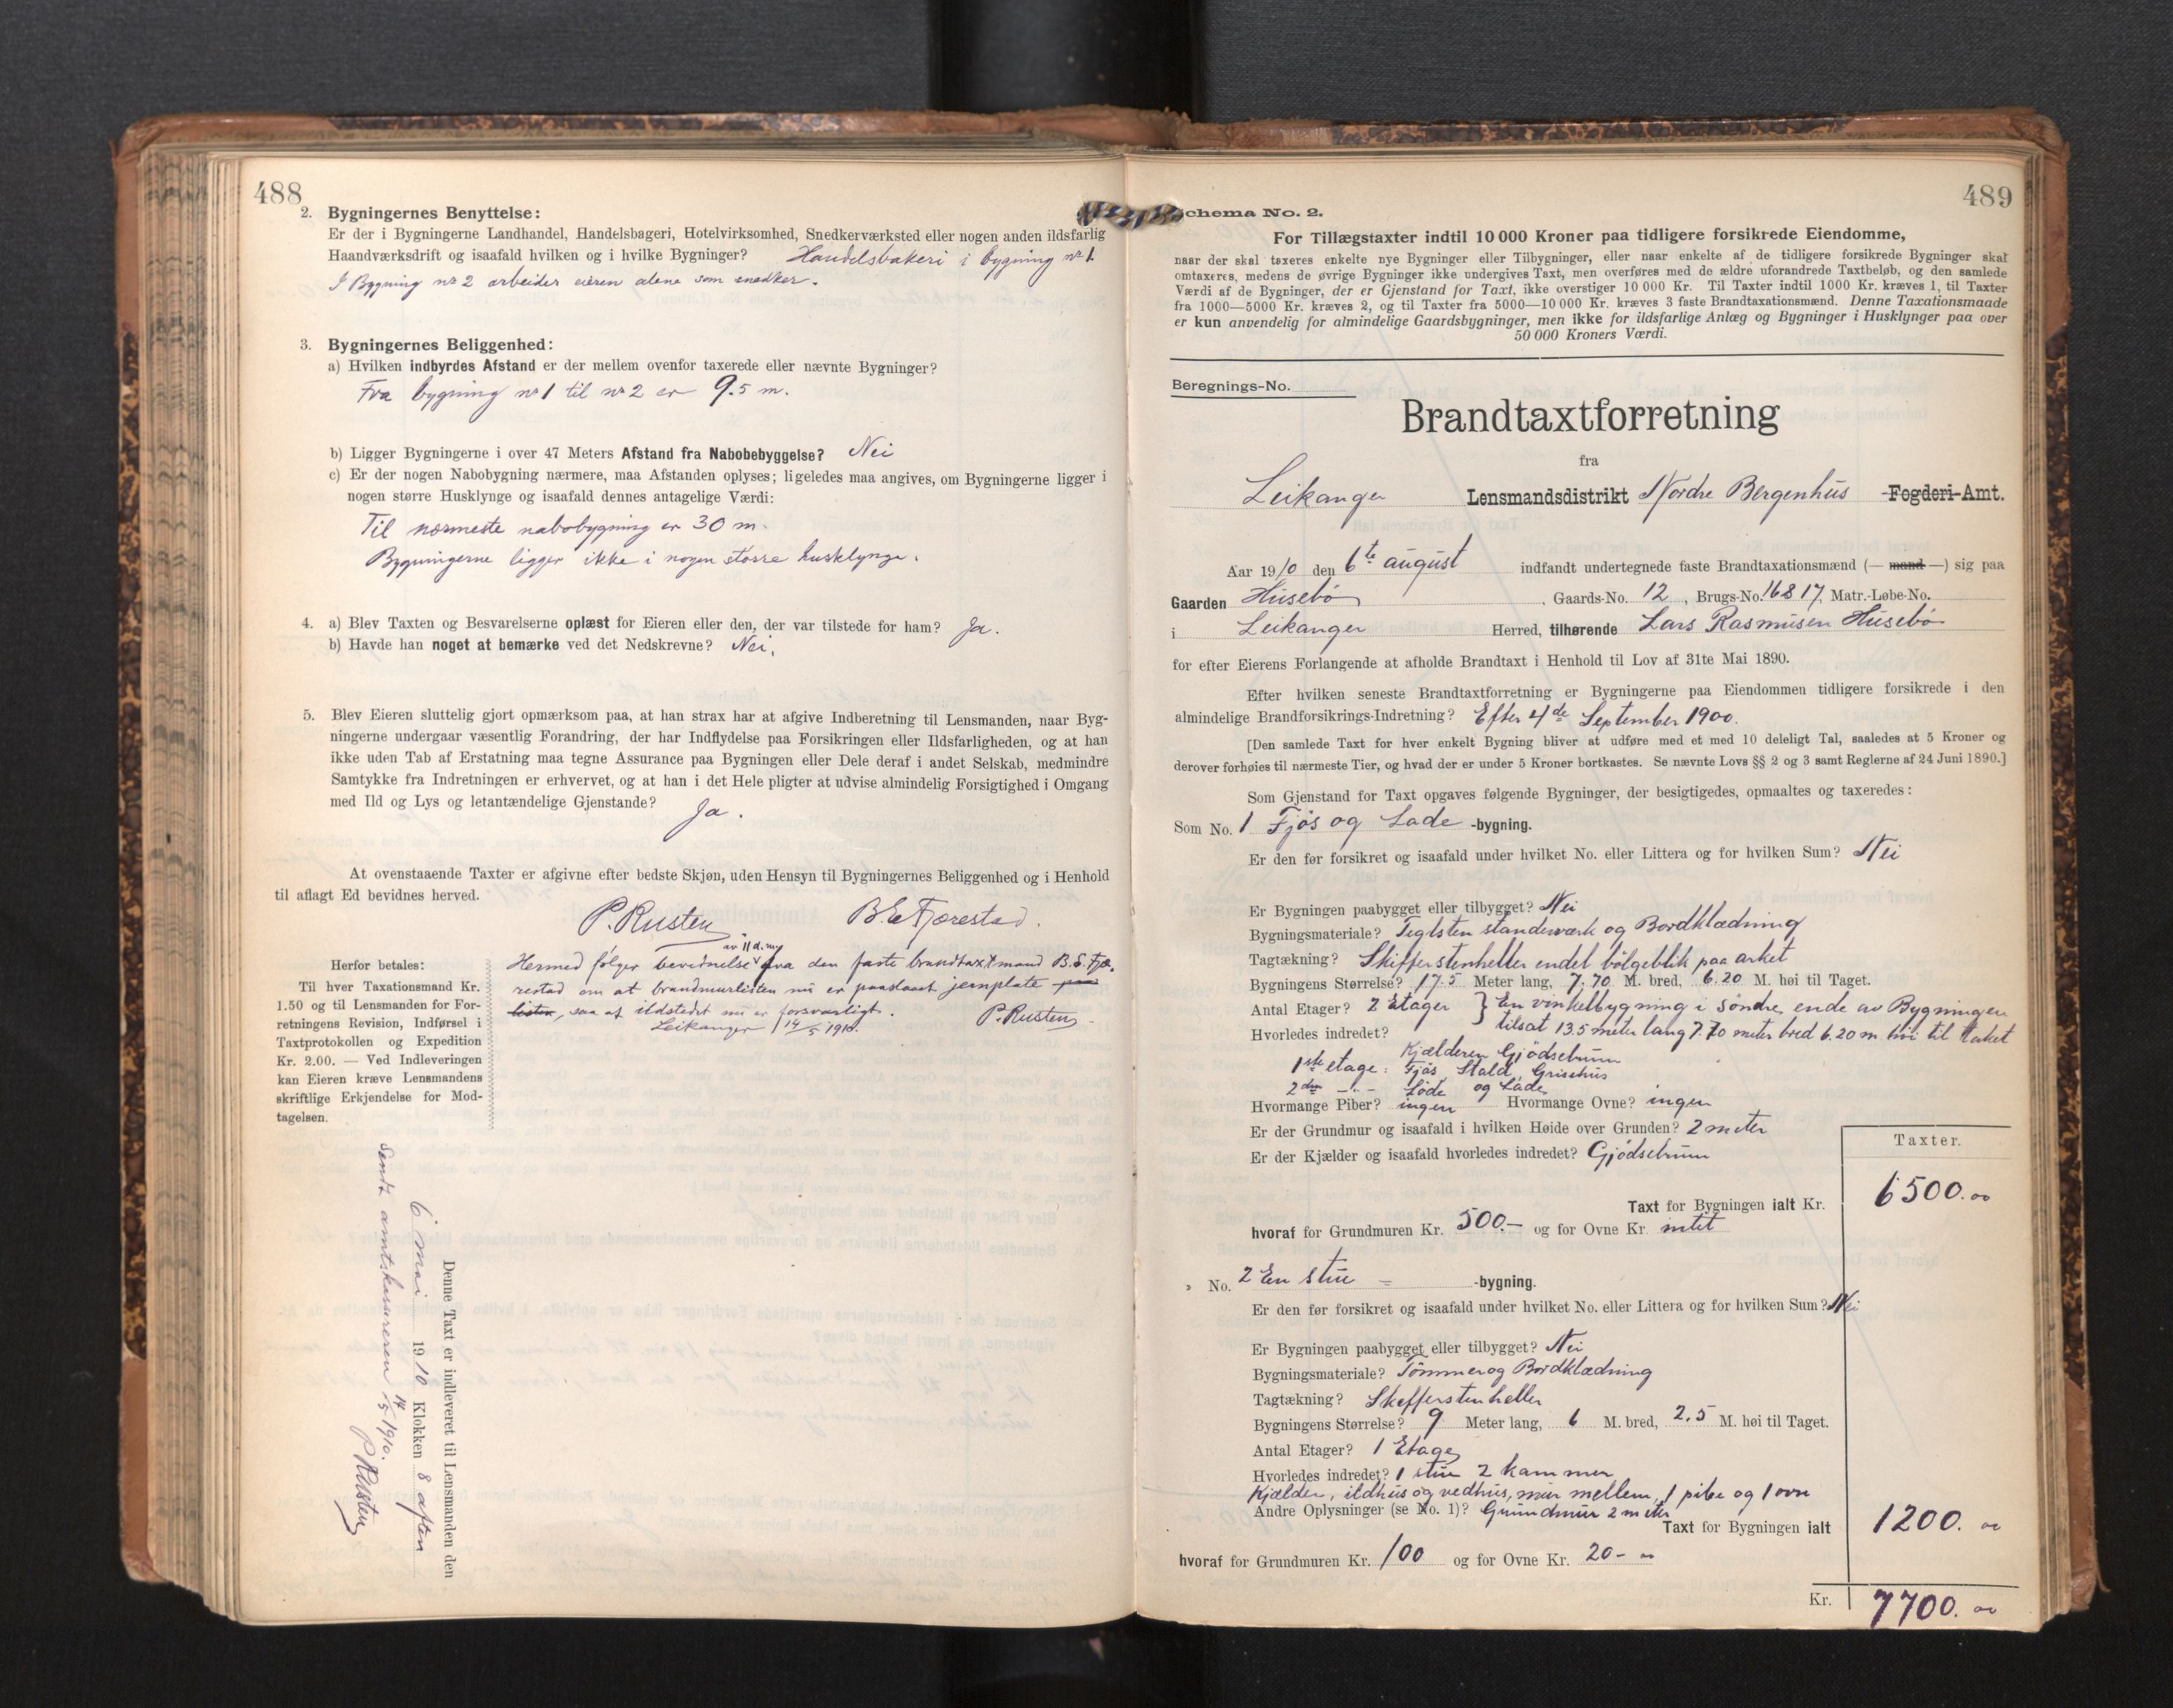 488
2. Bygningernes Benyttelse:
Er der i Bygningerne Landhandel, Handelsbageri, Hotelvirksomhed, Snedkerværksted eller nogen anden ildsfarlig
Haandværksdrift og isaafald hvilken og i hvilke Bygninger? Handelsbakeri i bygning nr 1.
I Bygning nr 2 arbeider eieren alene som snedker.
3. Bygningernes Beliggenhed:
a) Hvilken indbyrdes Afstand er der mellem ovenfor taxerede eller nævnte Bygninger?
Fra bygning nr 1 til nr 2 er 9.5 m.
b) Ligger Bygningerne i over 47 Meters Afstand fra Nabobebyggelse? Nei
c) Er der nogen Nabobygning nærmere, maa Afstanden oplyses; ligeledes maa angives, om Bygningerne ligger i
nogen større Husklynge og isaafald dennes antagelige Værdi:
Til nærmeste nabobygning er 30 m.
Bygningerne ligger ikke i nogen større husklynge.
4. a) Blev Taxten og Besvarelserne oplæst for Eieren eller den, der var tilstede for ham? Ja.
b) Havde han noget at bemærke ved det Nedskrevne? Nei.
5. Blev Eieren sluttelig gjort opmærksom paa, at han strax har at afgive Indberetning til Lensmanden, naar Byg-
ningerne undergaar væsentlig Forandring, der har Indflydelse paa Forsikringen eller Ildsfarligheden, og at han
ikke uden Tab af Erstatning maa tegne Assurance paa Bygningen eller Dele deraf i andet Selskab, medmindre
Samtykke fra Indretningen er erhvervet, og at han i det Hele pligter at udvise almindelig Forsigtighed i Omgang
med Ild og Lys og letantændelige Gjenstande? Ja.
At ovenstaaende Taxter er afgivne efter bedste Skjøn, uden Hensyn til Bygningernes Beliggenhed og i Henhold
til aflagt Ed bevidnes herved.
P. Rusten B.E. Fjærestad.
Herfor betales:
Til hver Taxationsmand Kr.
1.50 og til Lensmanden for For-
retningens Revision, Indførsel i
Taxtprotokollen og Expedition
Kr. 2.00. — Ved Indleveringen
kan Eieren kræve Lensmandens
skriftlige Erkjendelse for Mod-
tagelsen.
av 11 d. m.
Hermed følger bevidnelse fra den faste brandtaxtmand B.E. Fjæ-
restad om at brandmurlisten nu er paaslaaet jernplate paa
listen, saa at ildstedet nu er forsvarligt.
Leikanger 14/5 1910. P. Rusten.
Denne Taxt er indleveret til Lensmanden den
6 mai 1910 Klokken 8 aften
Sendt amtskassereren 14/5 1910.
P Rusten
489
Schema No. 2.
For Tillægstaxter indtil 10 000 Kroner paa tidligere forsikrede Eiendomme,
naar der skal taxeres enkelte nye Bygninger eller Tilbygninger, eller naar enkelte af de tidligere forsikrede Bygninger skal
omtaxeres, medens de øvrige Bygninger ikke undergives Taxt, men overføres med de ældre uforandrede Taxtbeløb, og den samlede
Værdi af de Bygninger, der er Gjenstand for Taxt, ikke overstiger 10 000 Kr. Til Taxter indtil 1000 Kr. kræves 1, til Taxter
fra 1000—5000 Kr. kræves 2, og til Taxter fra 5000—10 000 Kr. kræves 3 faste Brandtaxationsmænd. Denne Taxationsmaade
er kun anvendelig for almindelige Gaardsbygninger, men ikke for ildsfarlige Anlæg og Bygninger i Husklynger paa over
50 000 Kroners Værdi.
Beregnings-No.
Brandtaxtforretning
fra
Leikanger Lensmandsdistrikt Nordre Bergenhus Fogderi-Amt.
Aar 1910 den 6te august indfandt undertegnede faste Brandtaxationsmænd (— mand —) sig paa
Gaarden Husebø, Gaards-No. 12, Brugs-No. 16 & 17, Matr.-Løbe-No.
i Leikanger Herred, tilhørende Lars Rasmusen Husebø
for efter Eierens Forlangende at afholde Brandtaxt i Henhold til Lov af 31te Mai 1890.
Efter hvilken seneste Brandtaxtforretning er Bygningerne paa Eiendommen tidligere forsikrede i den
almindelige Brandforsikrings-Indretning? Efter 4de September 1900.
[Den samlede Taxt for hver enkelt Bygning bliver at udføre med et med 10 deleligt Tal, saaledes at 5 Kroner og
derover forhøies til nærmeste Tier, og hvad der er under 5 Kroner bortkastes. Se nævnte Lovs §§ 2 og 3 samt Reglerne af 24 Juni 1890.]
Som Gjenstand for Taxt opgaves følgende Bygninger, der besigtigedes, opmaaltes og taxeredes:
Som No. 1 Fjøs og Lade -bygning.
Er den før forsikret og isaafald under hvilket No. eller Littera og for hvilken Sum? Nei
Er Bygningen paabygget eller tilbygget? Nei
Bygningsmateriale? Teglsten standeværk og Bordklædning
Tagtækning? Skifferstenheller endel bølgeblik paa arket
Bygningens Størrelse? 17.5 Meter lang, 7,70 M. bred, 6.20 M. høi til Taget.
Antal Etager? 2 Etager } En vinkelbygning i søndre ende av Bygningen
Hvorledes indredet? tilsat 13.5 meter lang 7.70 meter bred 6.20 m. høi til Taket
Kjælderen Gjødselrum
1ste etage: Fjøs, Stald, Grisehus
2den — Løde og Lade
Hvormange Piber? ingen Hvormange Ovne? ingen
Er der Grundmur og isaafald i hvilken Høide over Grunden? 2 meter
Er der Kjælder og isaafald hvorledes indredet? Gjødselrum
Taxter.
Taxt for Bygningen ialt Kr. 6500.00
hvoraf for Grundmuren Kr. 500.— og for Ovne Kr. intet
" No. 2 En stue -bygning.
Er den før forsikret og isaafald under hvilket No. eller Littera og for hvilken Sum? Nei
Er Bygningen paabygget eller tilbygget? Nei
Bygningsmateriale? Tømmer og Bordklædning
Tagtækning? Skifferstenheller
Bygningens Størrelse? 9 Meter lang, 6 M. bred, 2.5 M. høi til Taget.
Antal Etager? 1 Etage
Hvorledes indredet? 1 stue 2 kammer
Kjælder, ildhus og vedhus, mur mellem, 1 pibe og 1 ovn
Andre Oplysninger (se No. 1)? Grundmur 2 meter
Taxt for Bygningen ialt 1200.00
hvoraf for Grundmuren Kr. 100 og for Ovne Kr. 20-
Kr. 7700.00